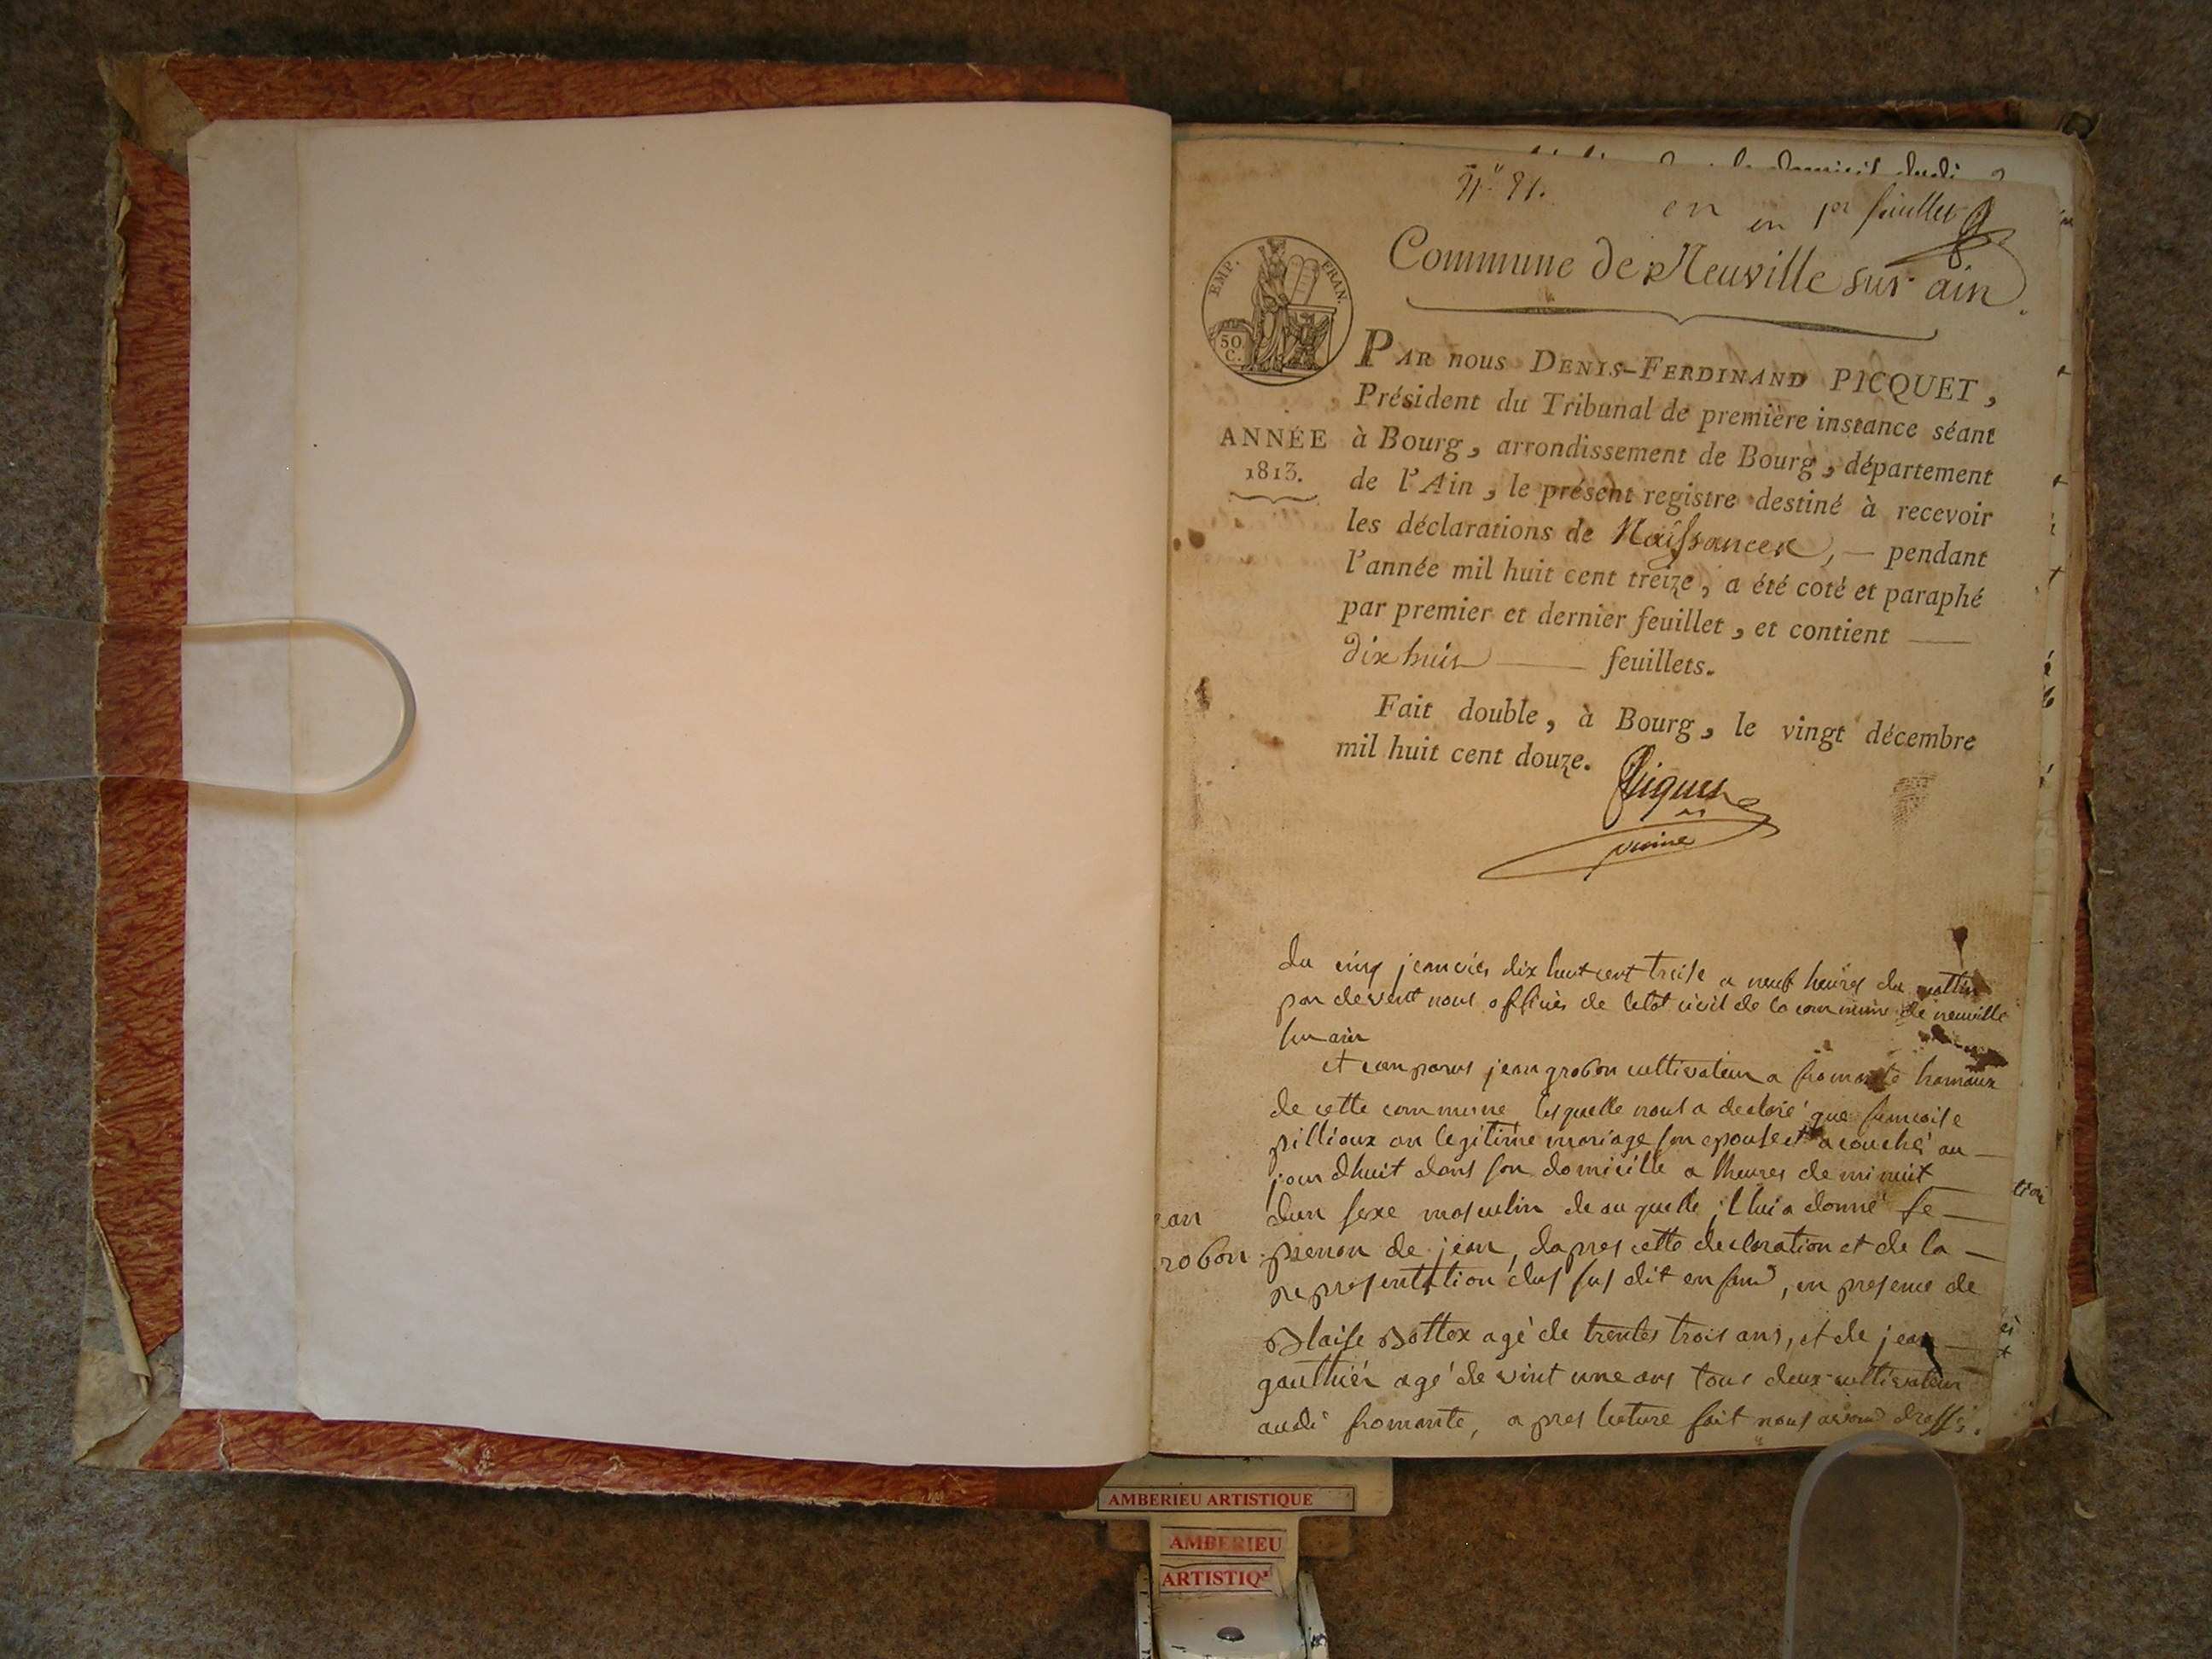 N.º 81.
en
en 1er feuillet
Commune de Neuville sur ain
EMP. FRAN.
50
C.
ANNÉE
1813.
PAR nous DENIS-FERDINAND PICQUET,
Président du Tribunal de première instance séant
à Bourg, arrondissement de Bourg, département
de l'Ain, le présent registre destiné à recevoir
les déclarations de Naissances, — pendant
l'année mil huit cent treize, a été coté et paraphé
par premier et dernier feuillet, et contient —
dix huit — feuillets.
Fait double, à Bourg, le vingt décembre
mil huit cent douze.
Picquet
du cinq jeanvier dix huit cent treise a neuf heures du mattin
par devent nous officier de letat civil de la commune de neuville
sur ain
et comparus jean grobon cultivateur a fromente hamaux
de cette commune lesquelle nous a declaré que francoise
pillioux an legitime mariage son epouse et acouché au —
jour dhuit dans son domicille a lheures de minuit —
dun sexe masculin de au quelle il lui a donné le —
prenon de jean, dapres cette declaration et de la —
representation dus sus dit enfant, en presence de
Blaise Bottex agé de trentes trois ans, et de jean —
gauthier agé de vint une ans tous deux cultivateur
audi fromante, apres lecture fait nous avons dressé.
ean
robon
AMBERIEU ARTISTIQUE
AMBERIEU
ARTISTIQ